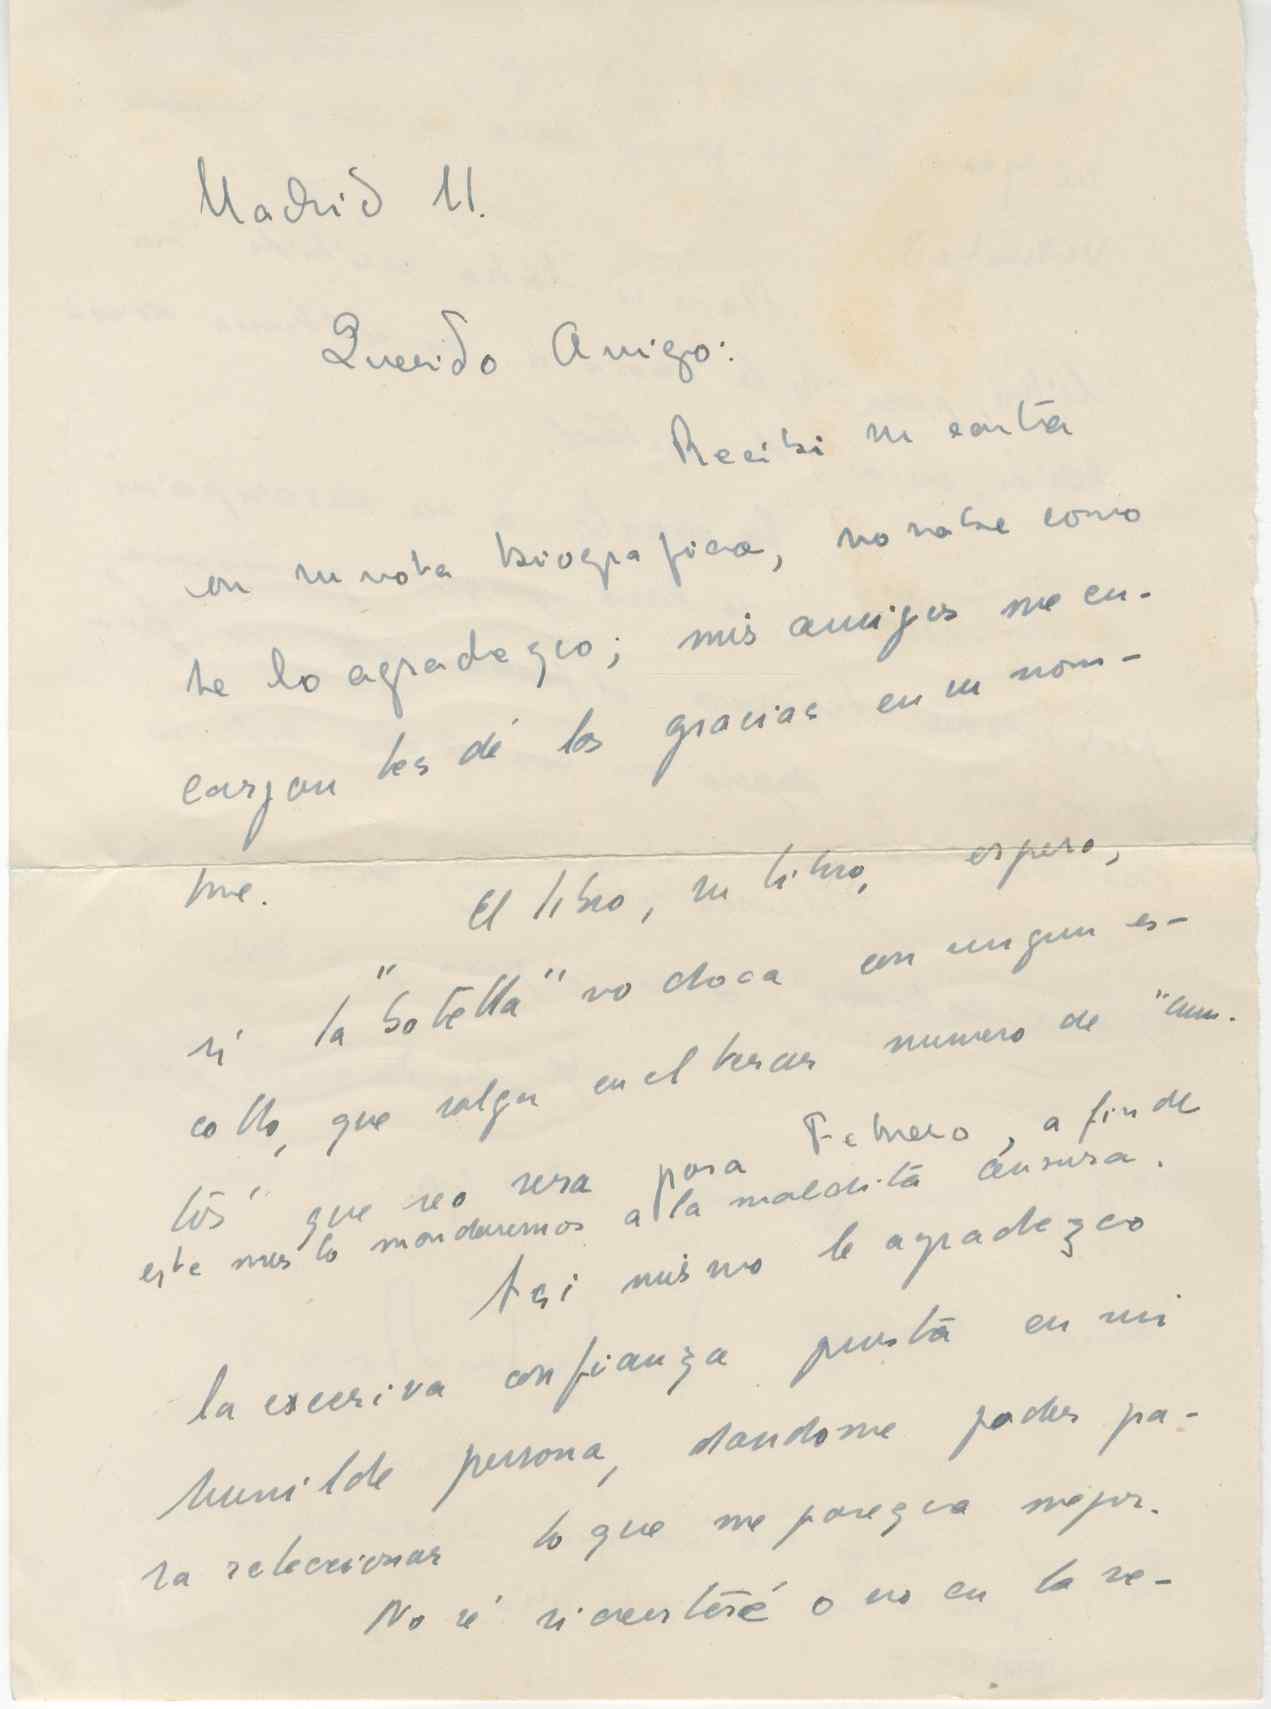 Madrid 11.
Querido Amigo:
Recibi su carta
con su nota biografica, no sabe como
se lo agradezco; mis amigos me en-
cargan les dé las gracias en su nom-
bre.
El libro, su libro, espero,
si la "botella" no choca con ningun es-
collo, que salga en el tercer numero de "Cuen-
tos" que seo sera para Febrero, a fin de
este mes lo mandaremos a la maldita censura.
Asi mismo le agradezco
la excesiva confianza puesta en mi
humilde persona, dandome poder pa-
ra seleccionar lo que me parezca mejor.
No sé si acertaré o no en la se-